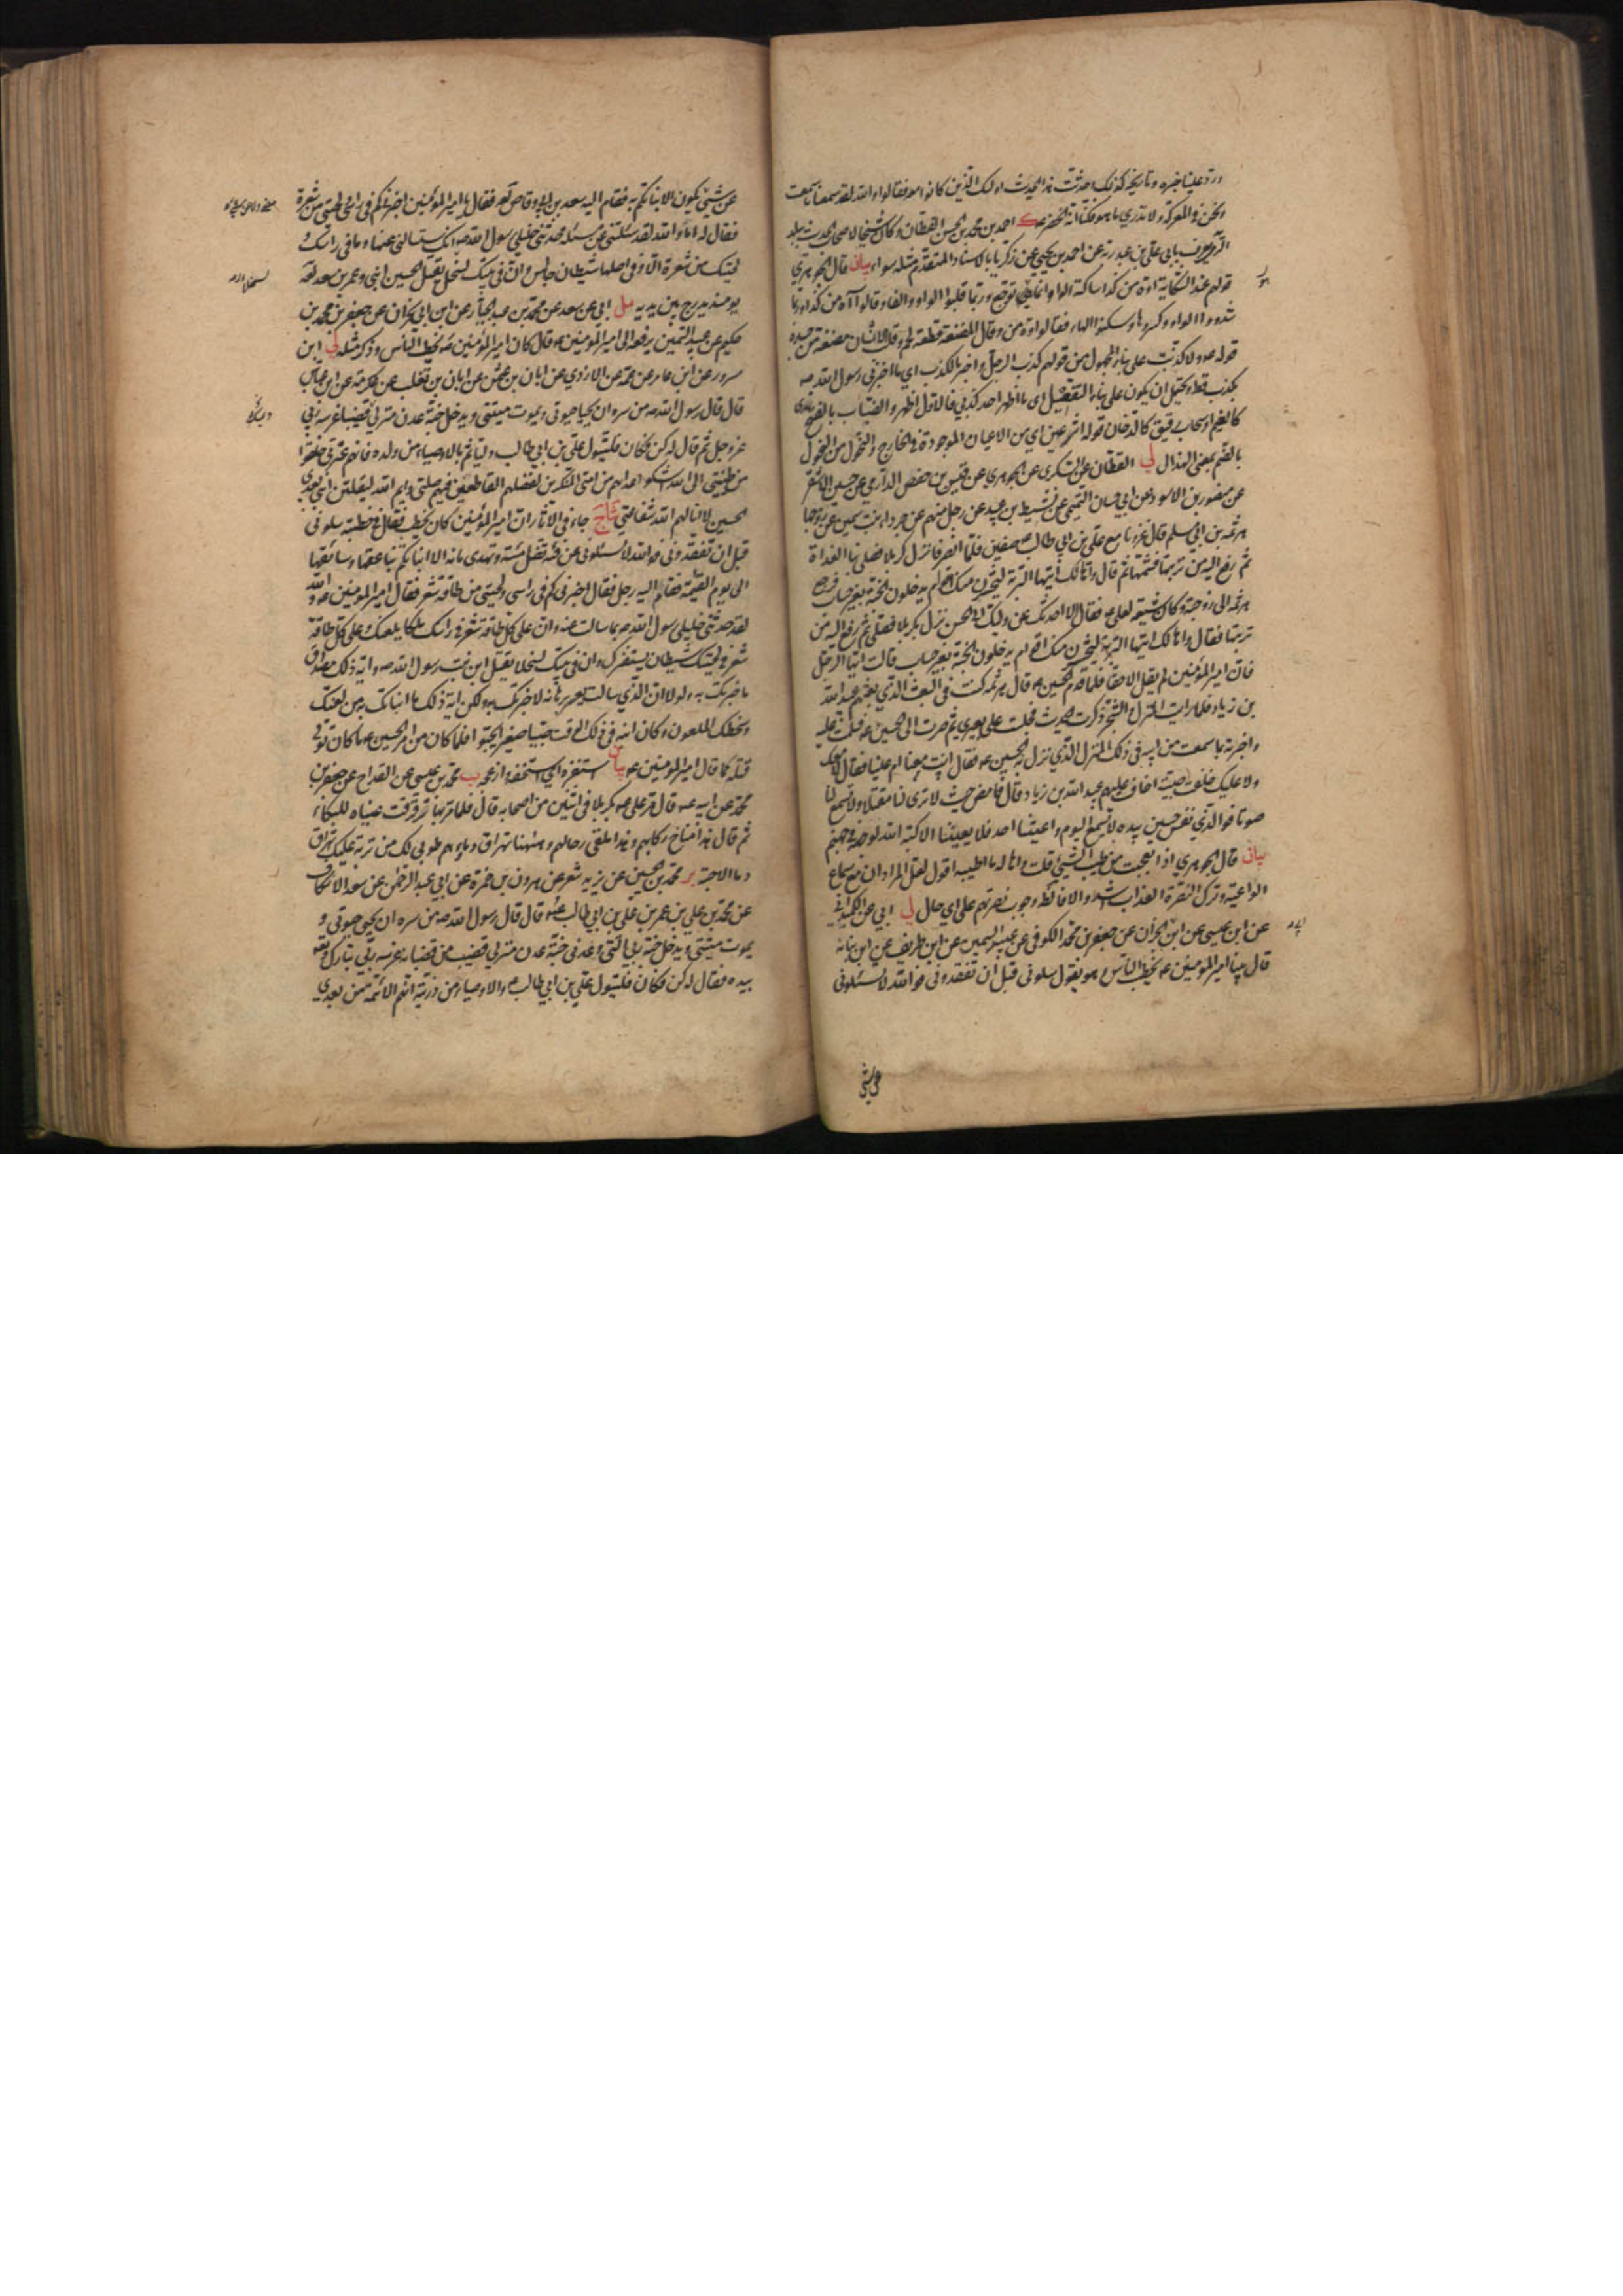 ورد علينا خبره وتاريخه كذلك فحدثت هذا الحديث اولئك الذين كانوا معه فقالوا والله لقد سمعنا ما سمعت
ونحن في المعركة ولا ندري ما هو فكنا نرى انه الخضر ك احمد بن محمد بن الحسن القطان وكان شيخا لاصحاب الحديث ببلد
الري يعرف بابي علي بن عبد ربه عن احمد بن يحيى عن زكريا بالاسناد المتقدم مثله سواء بيان قال الجوهري
قولهم عند الشكاية اوه من كذا ساكنة الواو انما هي توجع وربما قلبوا الواو الفا وقالوا آه من كذا وربما
شددوا الواو وكسروها وسكنوا الهاء فقالوا اوه من وقال المضغة قطعة لحم وقلب الانسان مضغة من جسده
قوله ع ولا كذبت على بناء المجهول من قولهم كذب الرجل اي اخبر بالكذب اي ما اخبرني رسول الله ص
بكذب قط ويحتمل ان يكون على بناء التفعيل اي ما اظهر احد كذبي فالاول اظهر والضباب بالفتح ندى
كالغيم او سحاب رقيق كالدخان قوله اثر عين اي من الاعيان الموجودة في الخارج والنحول من النحول
بالضم بمعنى الهزال لي القطان عن السكري عن الجوهري عن قيس بن حفص الدارمي عن حسين الاشقر
عن منصور بن الاسود عن ابي حسان التيمي عن نشيط بن عبيد عن رجل منهم عن جرداء بنت سمين عن زوجها
هرثمة بن ابي مسلم قال غزونا مع علي بن ابي طالب ع صفين فلما انصرفنا نزل كربلا فصلى بنا الغداة
ثم رفع اليه من تربتها فشمها ثم قال واها لك ايتها التربة ليحشرن منك اقوام يدخلون الجنة بغير حساب فرجع
هرثمة الى زوجته وكانت شيعة لعلي ع فقال الا احدثك عن وليك ابي الحسن نزل بكربلا فصلى ثم رفع اليه من
تربتها فقال واها لك ايتها التربة ليحشرن منك اقوام يدخلون الجنة بغير حساب قالت ايها الرجل
فان امير المؤمنين لم يقل الا حقا فلما قدم الحسين ع قال هرثمة كنت في البعث الذي بعثهم عبيد الله
بن زياد فلما رايت المنزل والشجر ذكرت الحديث فجلست على بعيري ثم صرت الى الحسين ع فسلمت عليه
واخبرته بما سمعت من ابيه في ذلك المنزل الذي نزل به الحسين ع فقال انت معنا ام علينا فقلت لا معك
ولا عليك خلفت صبية اخاف عليهم عبيد الله بن زياد قال فامض حيث لا ترى لنا مقتلا ولا تسمع لنا
صوتا فوالذي نفس حسين بيده لا يسمع اليوم واعيتنا احد فلا يعيننا الا كبه الله لوجهه في جهنم
بيان قال الجوهري اذا تعجبت من طيب الشيء قلت واها له ما اطيبه اقول لعل المراد ان مع سماع
الواعية وترك النصرة العذاب اشد والا فالظاهر وجوب نصرتهم على اي حال لي ابي عن الكميداني
عن ابن عيسى عن ابن ابي نجران عن جعفر بن محمد الكوفي عن عبيد السمين عن ابن طريف عن ابن نباتة
قال بينا امير المؤمنين ع يخطب الناس وهو يقول سلوني قبل ان تفقدوني فوالله لا تسئلوني
عن شيء
عن شيء يكون الا نبأتكم به فقام اليه سعد بن ابي وقاص فقال يا امير المؤمنين اخبرني كم في راسي ولحيتي من شعرة
فقال له اما والله لقد سئلتني عن مسئلة حدثني خليلي رسول الله ص انك ستسالني عنها وما في راسك و
لحيتك من شعرة الا وفي اصلها شيطان جالس وان في بيتك لسخلا يقتل الحسين ابني وعمر بن سعد
يومئذ يدرج بين يديه مل ابي عن سعد عن محمد بن عبد الجبار عن ابن ابي نجران عن جعفر بن محمد بن
حكيم عن عبيد السمين يرفعه الى امير المؤمنين ع قال كان امير المؤمنين ع يخطب الناس وذكر مثله لي ابن
مسرور عن ابن عامر عن عمه عن الازدي عن ابان بن عثمان عن ابان بن تغلب عن عكرمة عن ابن عباس
قال قال رسول الله ص من سره ان يحيا حيوتي ويموت ميتتي ويدخل جنة عدن منزلي قضيبا غرسه ربي
عز وجل ثم قال له كن فكان فليتول علي بن ابي طالب وليأتم بالاوصياء من ولده فانهم عترتي خلقوا
من طينتي الى الله اشكو اعداءهم من امتي المنكرين لفضلهم القاطعين فيهم صلتي وايم الله ليقتلن ابني بعدي
الحسين لا انالهم الله شفاعتي شا ج جاء في الاثار ان امير المؤمنين كان يخطب فقال في خطبته سلوني
قبل ان تفقدوني فوالله لا تسئلوني عن فئة تضل مئة وتهدي مائة الا انبأتكم بناعقها وسائقها
الى يوم القيمة فقام اليه رجل فقال اخبرني كم في راسي ولحيتي من طاقة شعر فقال امير المؤمنين ع والله
لقد حدثني خليلي رسول الله ص بما سالت عنه وان على كل طاقة شعر في راسك ملكا يلعنك وعلى كل طاقة
شعر في لحيتك شيطان يستفزك وان في بيتك لسخلا يقتل ابن بنت رسول الله ص واية ذلك مصداق
ما خبرتك به ولولا ان الذي سالت يعسر برهانه لاخبرتك به ولكن اية ذلك ما انبأتك به من لعنك
وسخلك الملعون وكان ابنه في ذلك الوقت صبيا صغيرا يحبو فلما كان من امر الحسين ع ما كان تولى
قتله كما قال امير المؤمنين ع بيان استفزه اي استخفه وازعجه ب محمد بن عيسى عن القداح عن جعفر بن
محمد عن ابيه ع قال مر علي ع بكربلا في اثنين من اصحابه قال فلما مر بها ترقرقت عيناه للبكاء
ثم قال هذا مناخ ركابهم وهذا ملقى رحالهم وههنا تهراق دماؤهم طوبى لك من تربة عليك تهراق
دماء الاحبة ير محمد بن الحسين عن يزيد شعر عن هرون بن حمزة عن ابي عبد الرحمن عن سعد الاسكاف
عن محمد بن علي بن عمر بن علي بن ابي طالب ع قال قال رسول الله ص من سره ان يحيى حيوتي و
يموت ميتتي ويدخل جنة ربي التي وعدني جنة عدن منزلي قضيب من قضبانه غرسه ربي تبارك وتعالى
بيده فقال له كن فكان فليتول علي بن ابي طالب ع والاوصياء من ذريته انهم الائمة من بعدي